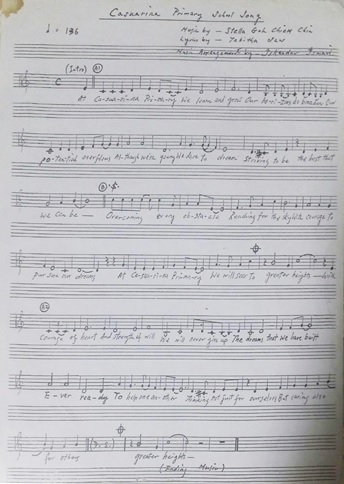 Casuarina Primary School Song
♩ = 136
Music by - Stella Goh Chiok Chin
Lyrics by - Tabitha
Music Arrangement by - Iskandar Ismail
(Intro) A1
At Ca-sua-ri-na Pri-ma-ry We learn and grow Our ho-ri-zons do broaden Our
po-ten-tial overflows Al-though we're young We dare to dream Striving to be the best that
We can be — Overcoming every ob-sta-cle Reaching for the heights Courage to
pursue our dreams At Ca-sua-ri-na Primary We will soar to greater heights — With
A2
Courage of heart And strength of will We will never give up The dreams that we have built
E-ver rea-dy To help one an-other Thinking not just for ourselves But caring also
for others greater heights —
(Ending Music)